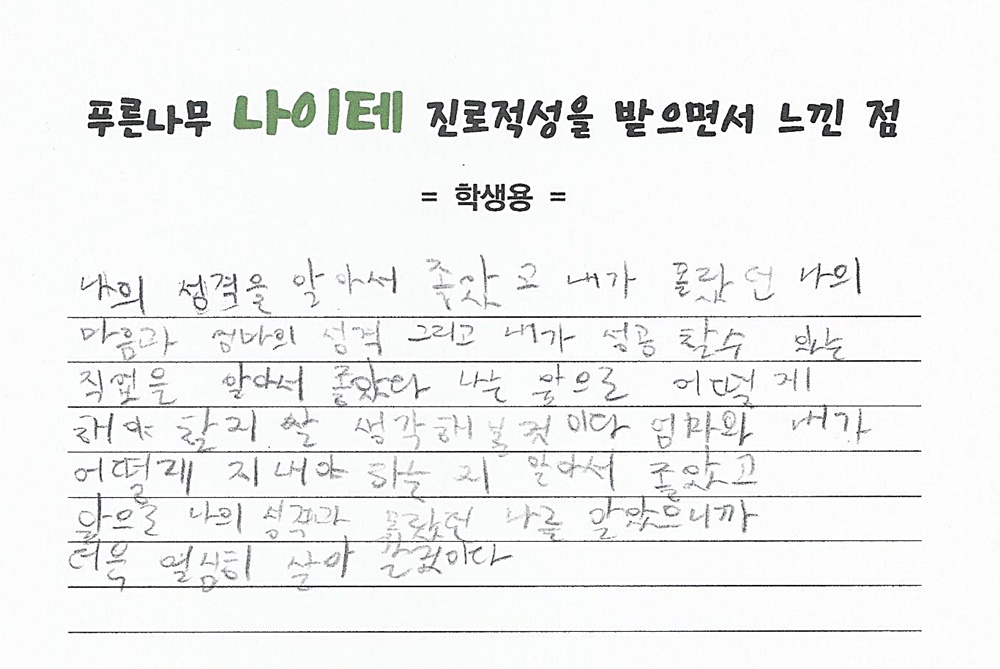 푸른나무 나이테 진로적성을 받으면서 느낀 점
= 학생용 =
나의 성격을 알아서 좋았고 내가 몰랐던 나의
마음과 엄마의 성격 그리고 내가 성공 할수 있는
직업을 알아서 좋았다 나는 앞으로 어떻게
해야 할지 잘 생각해 볼것이다 엄마와 내가
어떻게 지내야 하는지 알아서 좋았고
앞으로 나의 성격과 몰랐던 나를 알았으니까
더욱 열심히 살아 갈것이다